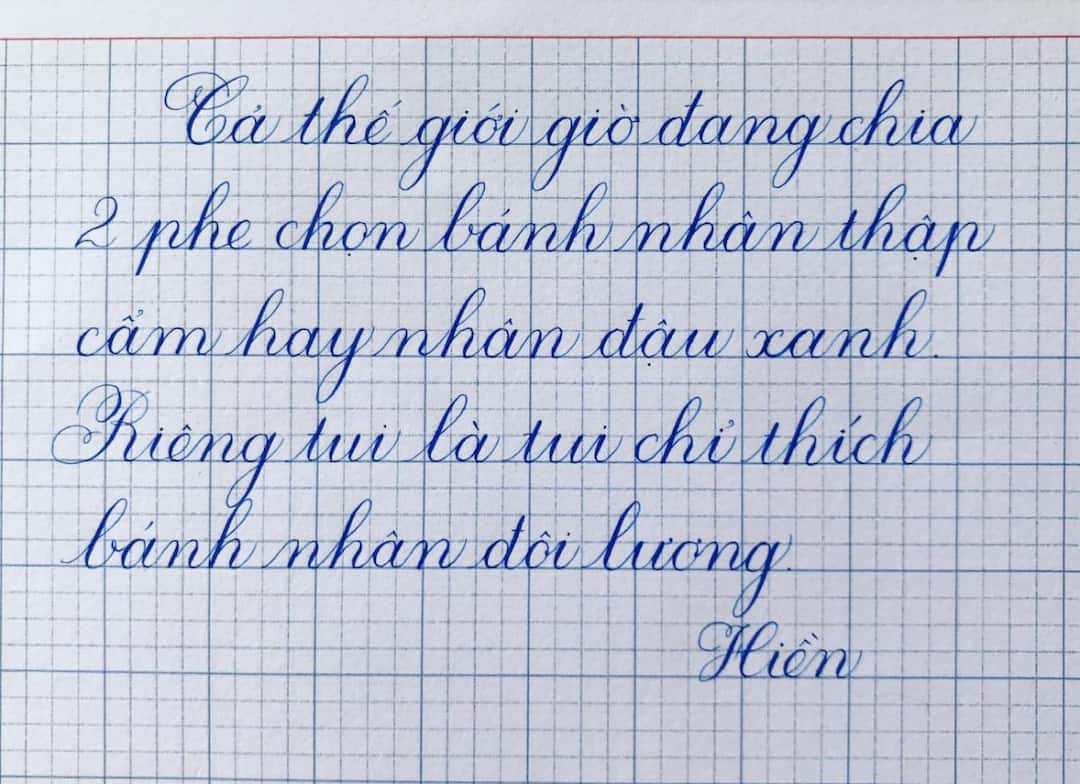 Cả thế giới giờ đang chia
2 phe chọn bánh nhân thập
cẩm hay nhân đậu xanh.
Riêng tui là tui chỉ thích
bánh nhân đôi lương.
Hiền